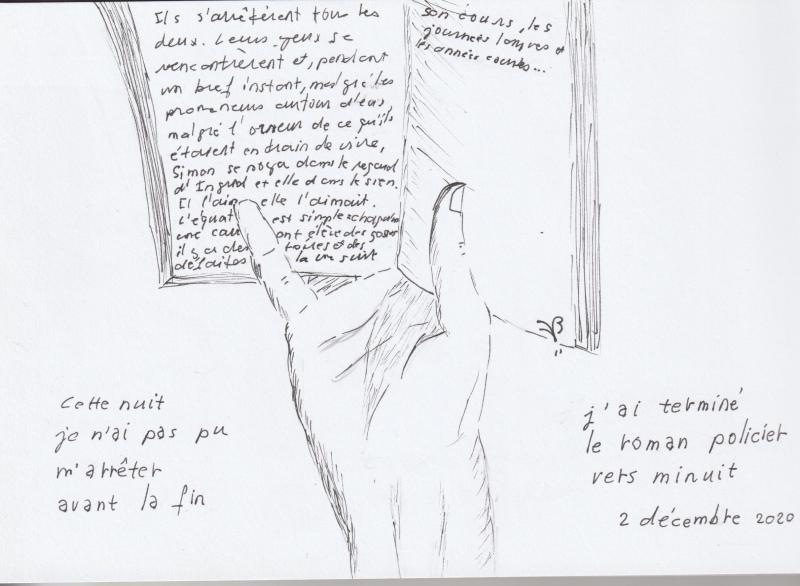 Ils s'arrêtèrent tous les
deux. Leurs yeux se
rencontrèrent et, pendant
un bref instant, malgré les
promeneurs autour d'eux,
malgré l'horreur de ce qu'ils
étaient en train de vivre,
Simon se noya dans le regard
d'Ingrid et elle dans le sien.
Il l'aim elle l'aimait.
L'équat est simple chaque
une cau ont élève des gosses
il y a des toires et des
défaites la vie suit
son cours, les
journées longues et
les années courtes...
Cette nuit
je n'ai pas pu
m'arrêter
avant la fin
j'ai terminé
le roman policier
vers minuit
2 décembre 2020